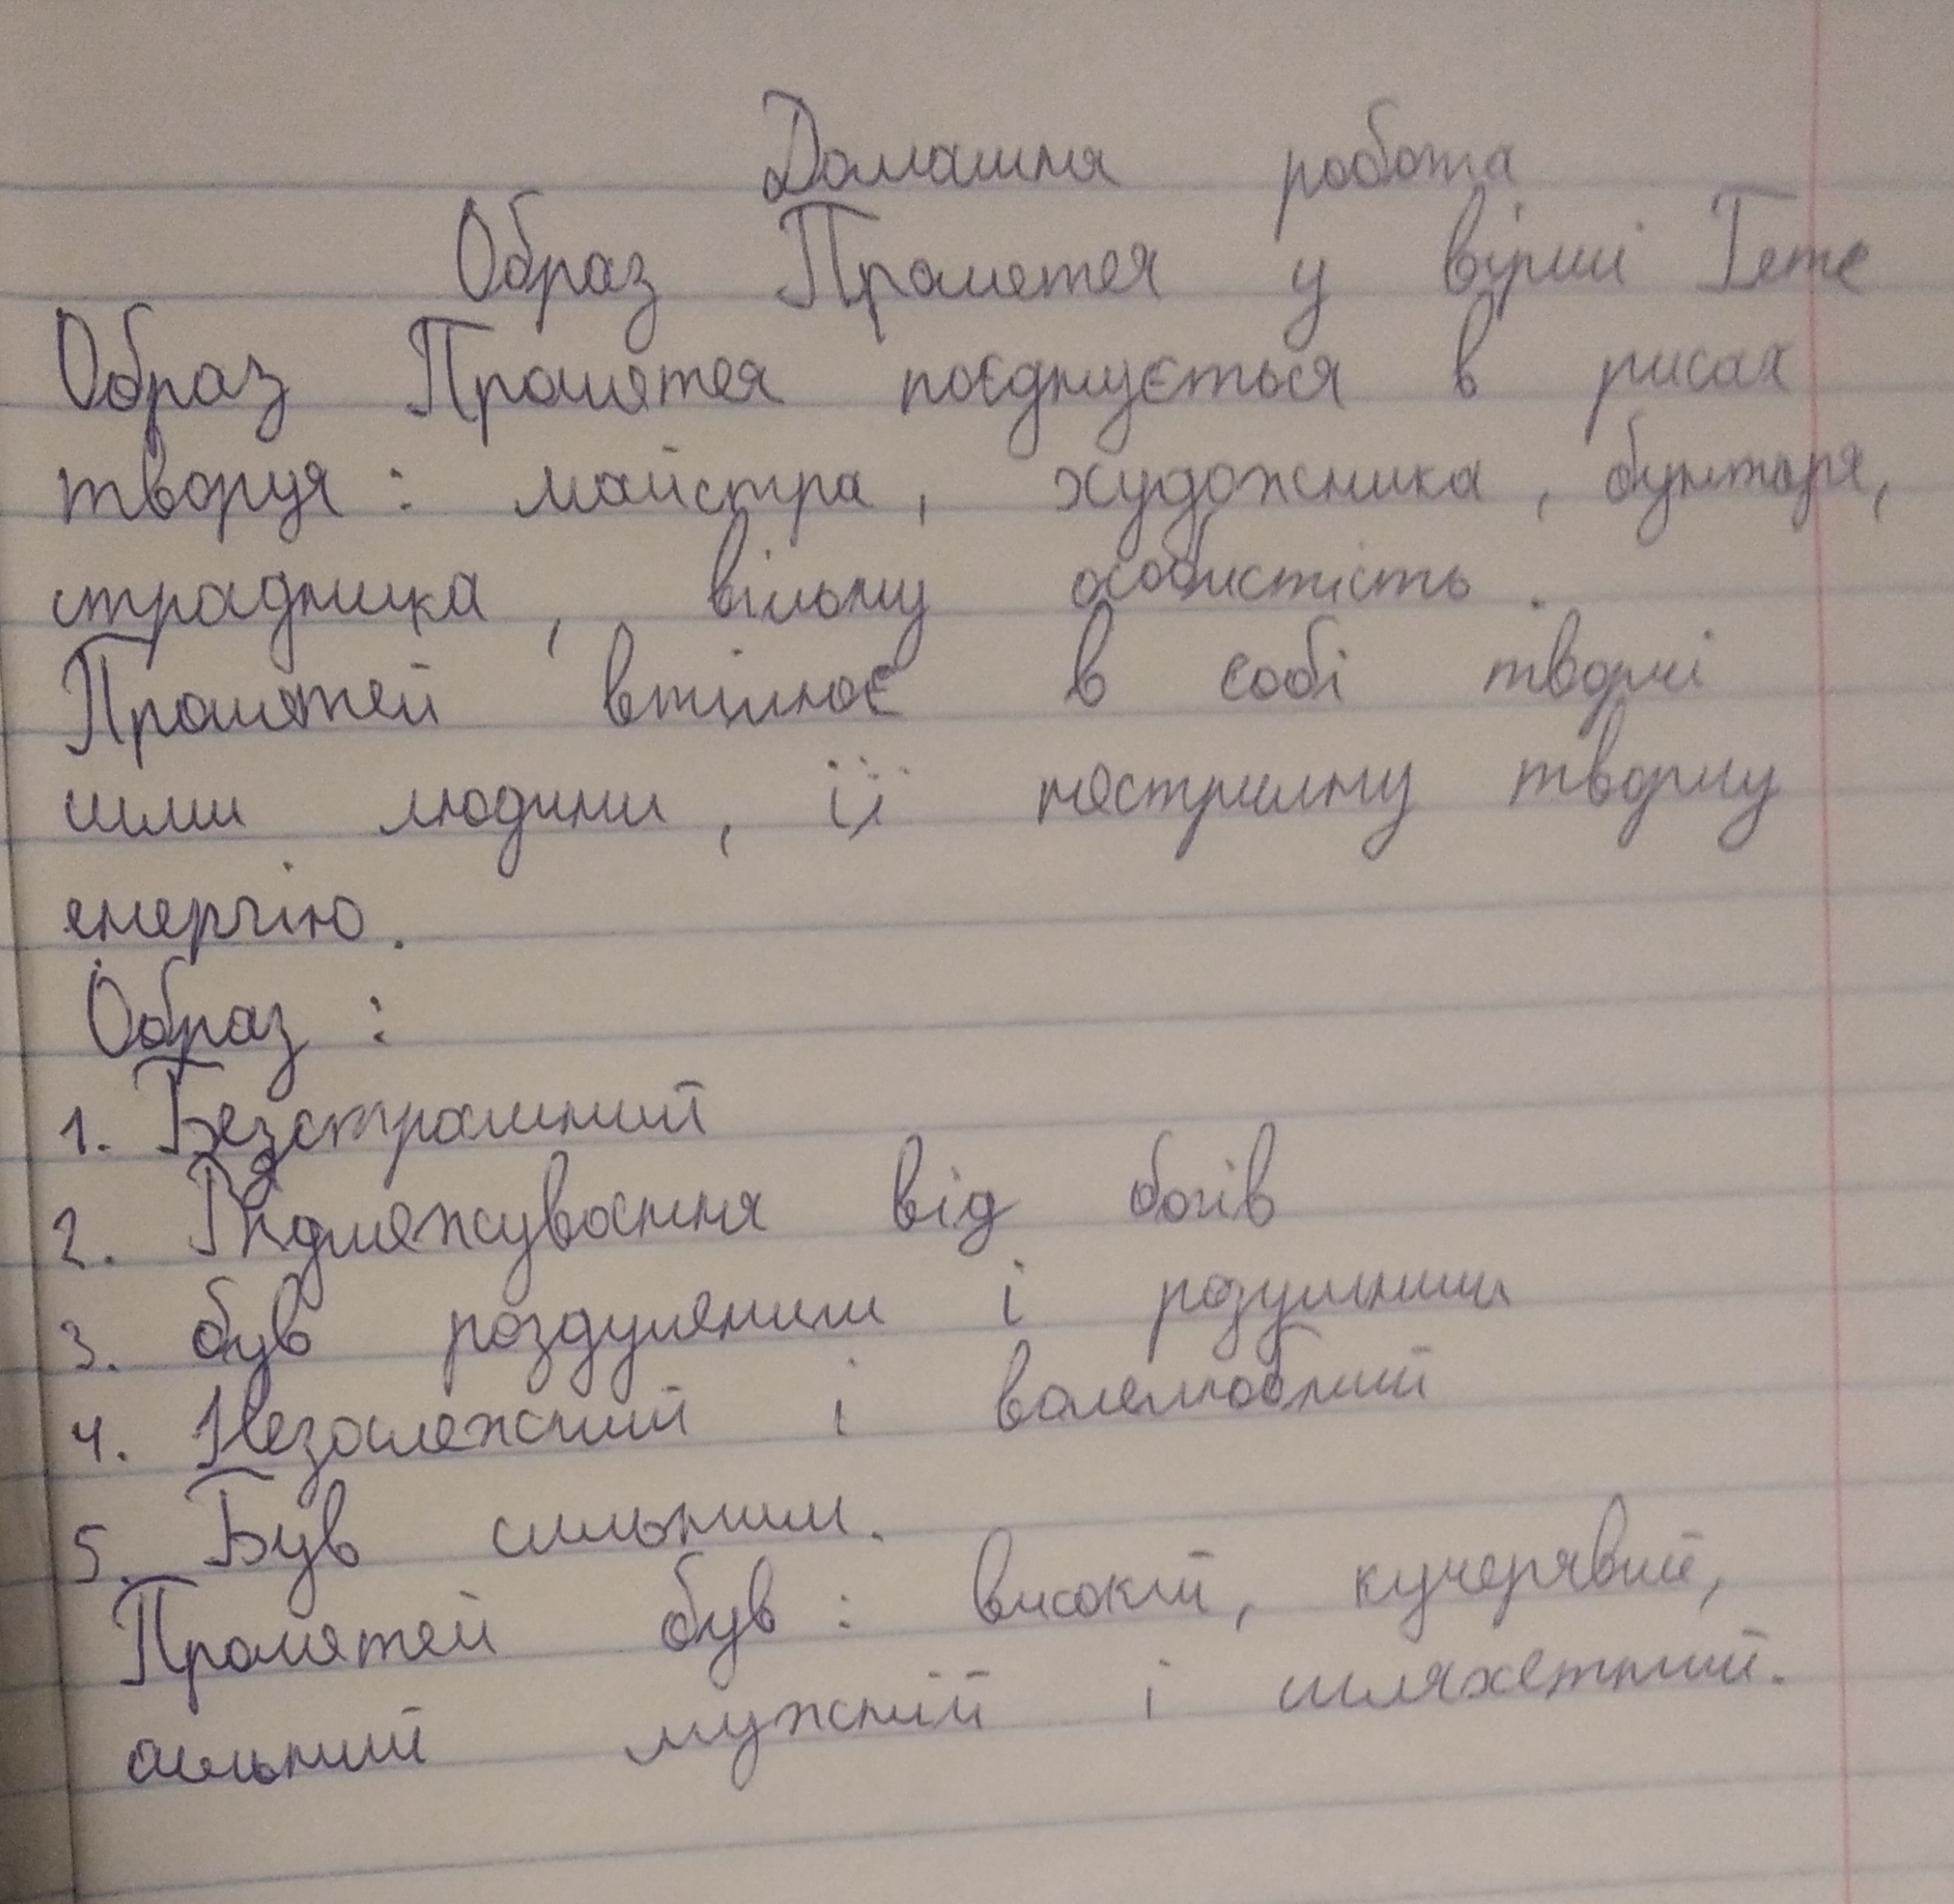 Домашня робота
Образ Прометея у вірші Гете
Образ Прометея поєднується в рисах
творця : майстра, художника, бунтаря,
страдника, вільну особистість.
Прометей втілює в собі творчі
сили людини, її нестримну творчу
енергію.
Образ :
1. Безстрашний
2. Відмежування від богів
3. був роздуменим і розумним
4. Незалежний і волелюбний
5. Був сильним.
Прометей був : високий, кучерявий,
сильний мужній і шляхетний.